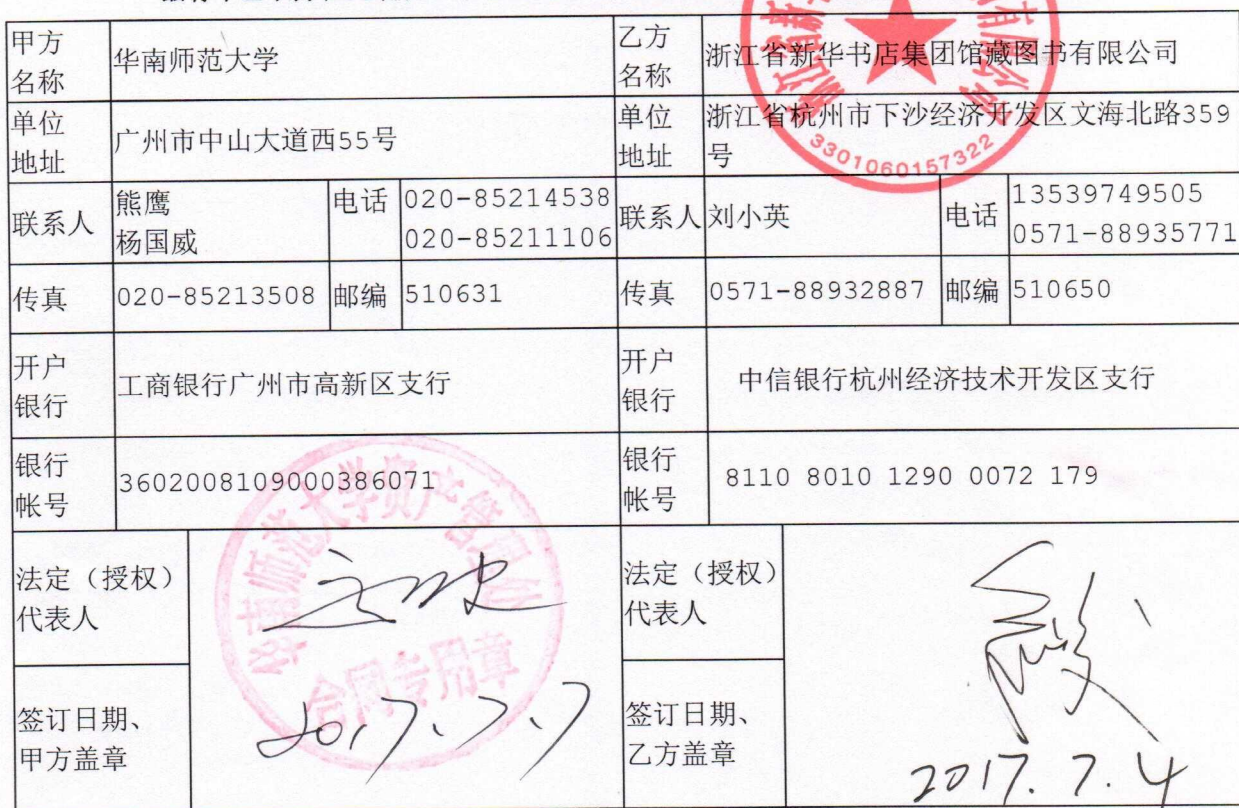 甲方
名称
华南师范大学
乙方
名称
浙江省新华书店集团馆藏图书有限公司
单位
地址
广州市中山大道西55号
单位
地址
浙江省杭州市下沙经济开发区文海北路359
号
联系人
熊鹰
杨国威
电话
020-85214538
020-85211106
联系人
刘小英
电话
13539749505
0571-88935771
传真
020-85213508
邮编
510631
传真
0571-88932887
邮编
510650
开户
银行
工商银行广州市高新区支行
开户
银行
中信银行杭州经济技术开发区支行
银行
帐号
3602008109000386071
银行
帐号
8110 8010 1290 0072 179
法定（授权）
代表人
法定（授权）
代表人
签订日期、
甲方盖章
2017.7.7
签订日期、
乙方盖章
2017.7.4
华南师范大学资产管理处
合同专用章
3301060157322